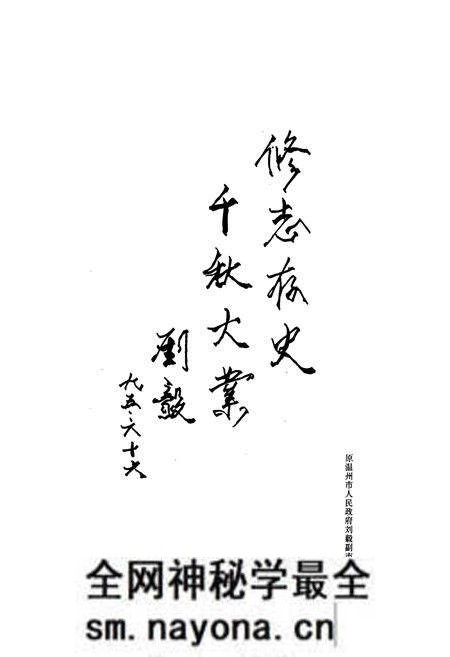 修志存史
千秋大業
劉毅
九五·六十六
原温州市人民政府刘毅副市
全网神秘学最全
sm.nayona.cn